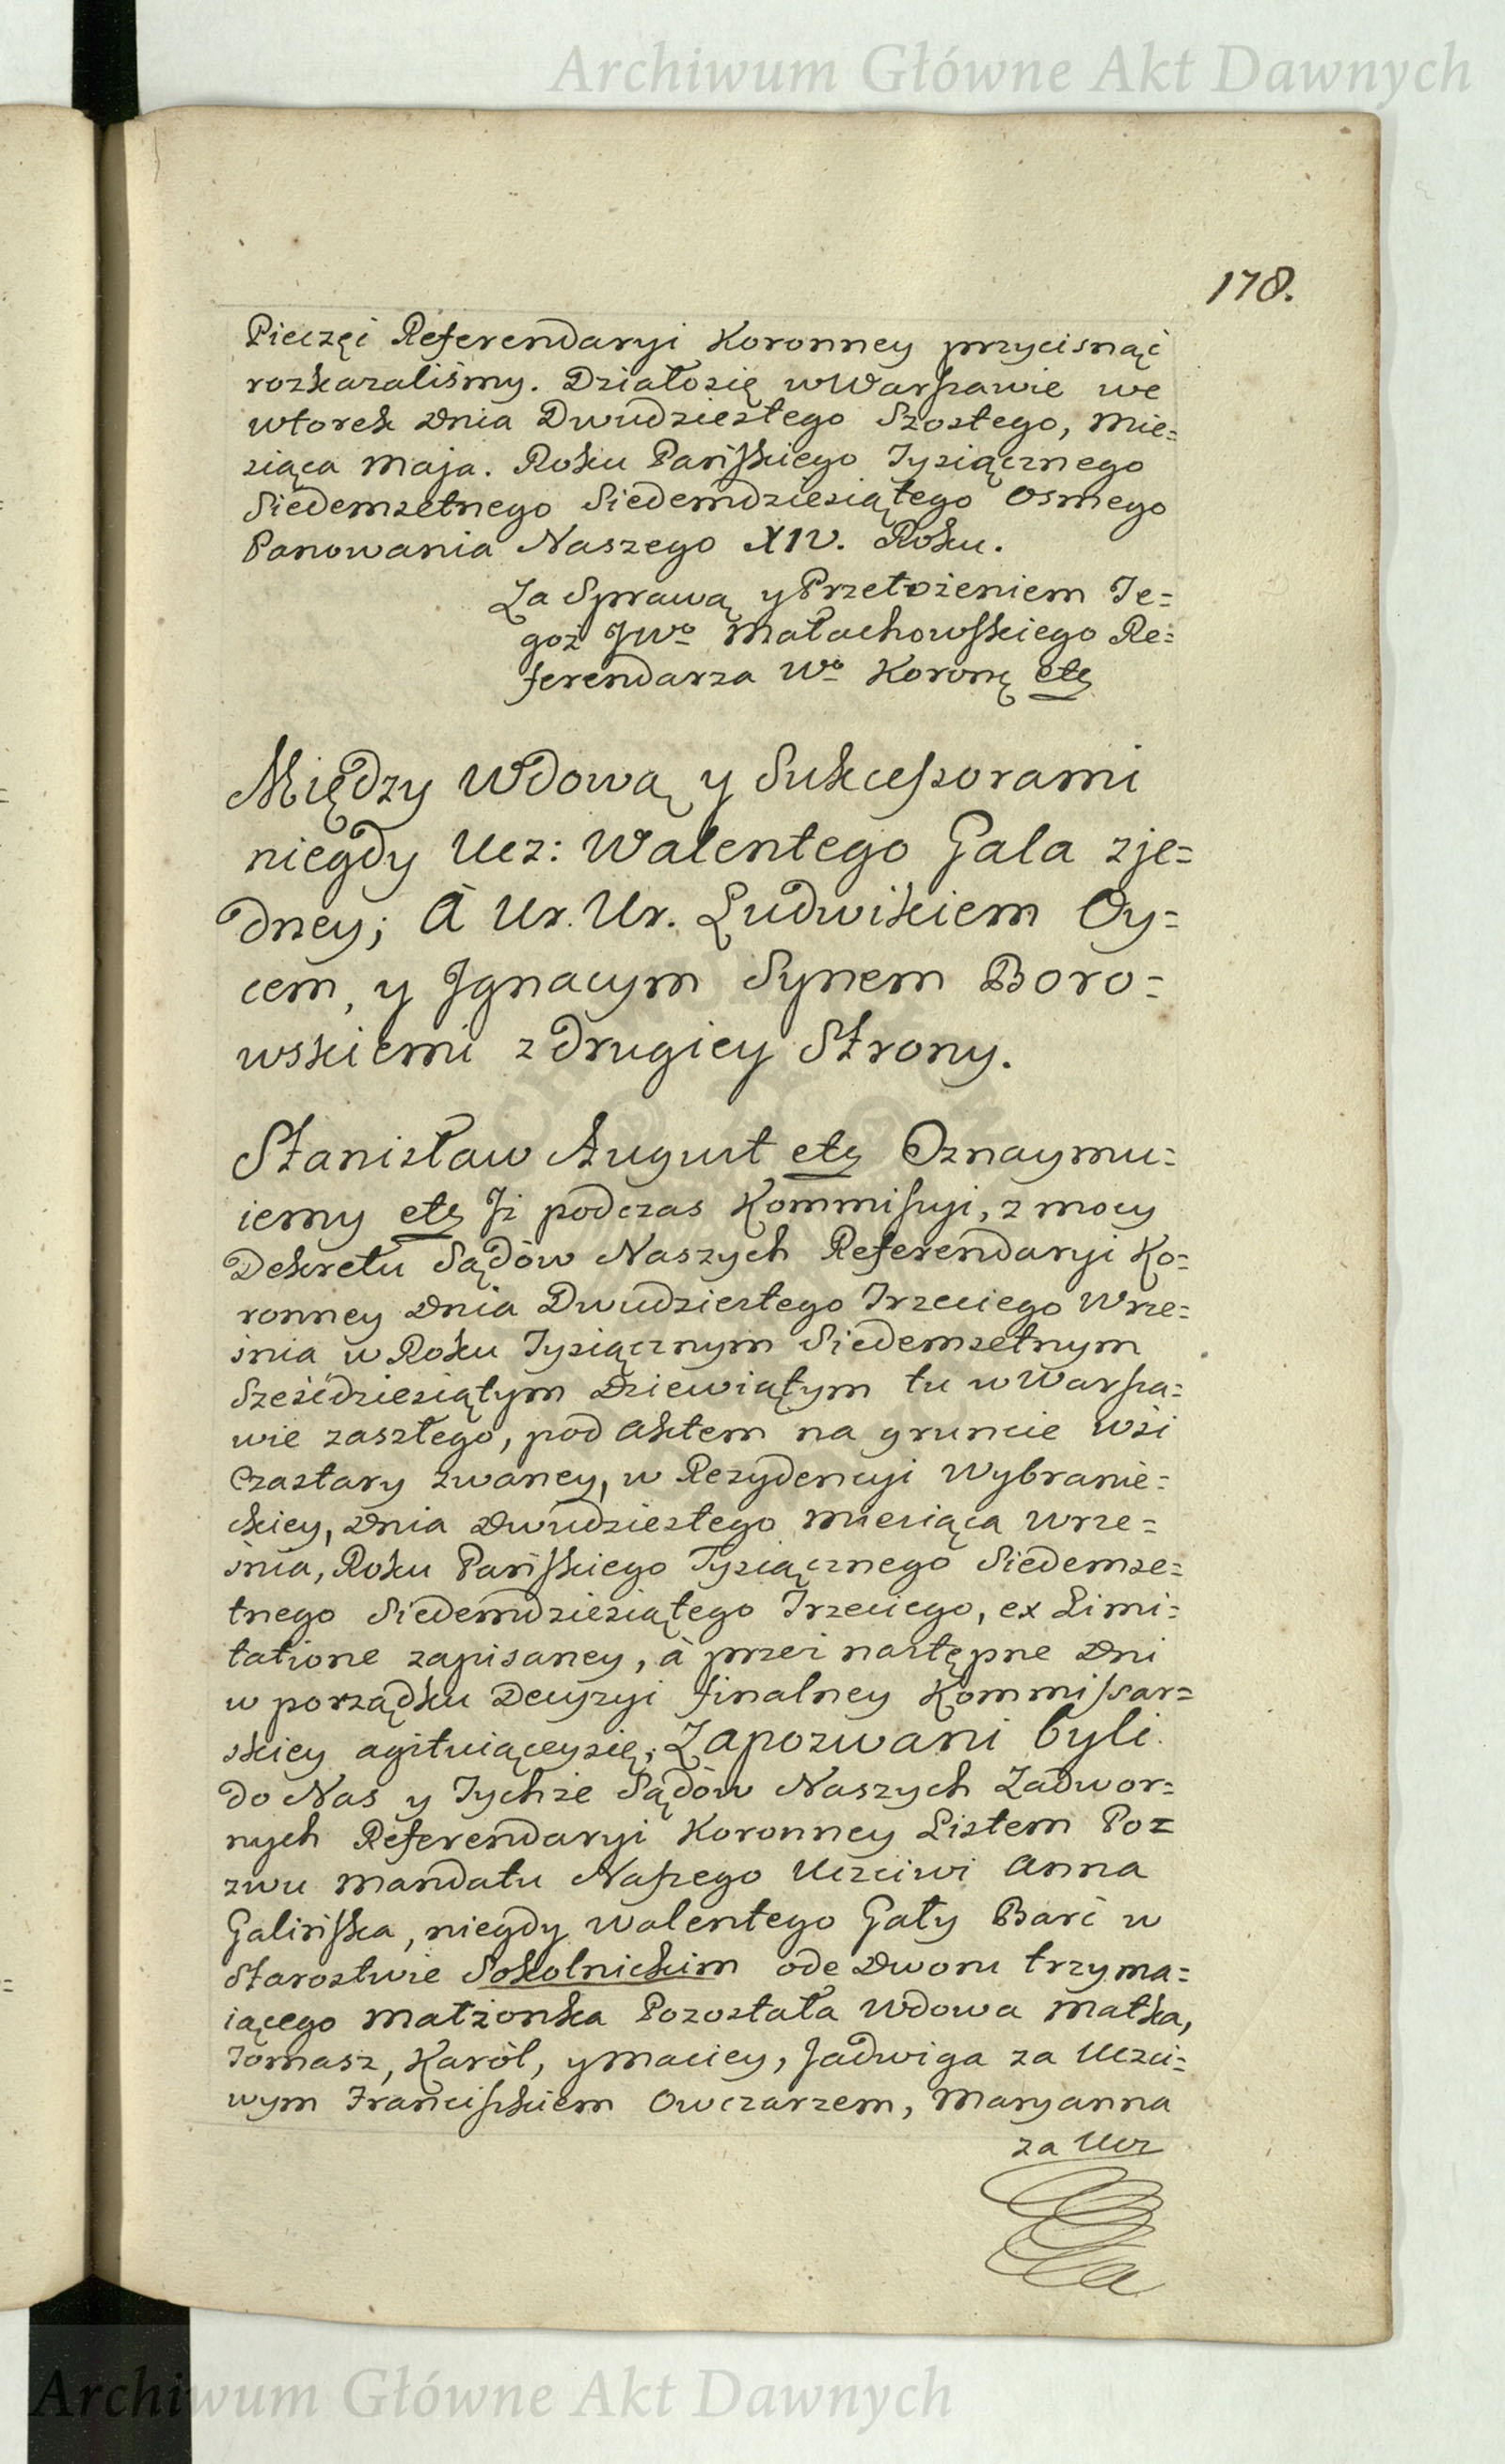 Archiwum Główne Akt Dawnych
178.
Pieczęi Referendaryi Koronney przycisnąć
rozkazaliśmy. Działosię w Warszawie we
wtorek Dnia Dwudziestego Szostego, Mie=
siąca Maja. Roku Pańskiego Tysiącznego
Siedemsetnego Siedemdziesiątego Osmego
Panowania Naszego XIV. Roku.
Za Sprawą y Przełożeniem Je=
goż JWo Małachowskiego Re=
ferendarza Wo Koronę etc
Między Wdową y Sukcessorami
niegdy Ucz: Walentego Gala zje=
dney; à Ur. Ur. Ludwikiem Oy=
cem, y Jgnacym Synem Boro=
wskiemi z drugiey Strony.
Stanisław August etc Oznaymu=
iemy etc Jż podczas Kommissyi, z mocy
Dekretu Sądów Naszych Referendaryi Ko=
ronney Dnia Dwudziestego Trzeciego Wrze=
śnia w Roku Tysiącznym Siedemsetnym
Sześćdziesiątym Dziewiątym tu w Warsza=
wie zaszłego, pod Aktem na gruncie Wsi
Czastary zwaney, w Rezydencyi Wybranie=
ckiey, Dnia Dwudziestego Miesiąca Wrze=
śnia, Roku Pańskiego Tysiącznego Siedemse=
tnego Siedemdziesiątego Trzeciego, ex Limi=
tatione zapisaney, à przez następne Dni
w porządku Decyzyi finalney Kommissar=
skiey agituiąceysię, Zapozwani byli
do Nas y Tychże Sądów Naszych Zadwor=
nych Referendaryi Koronney Listem Po=
zwu Mandatu Naszego Uczciwi Anna
Galińska, niegdy Walentego Gały Barć w
Starostwie Sokolnickim ode Dworu trzyma=
iącego Małżonka Pozostała Wdowa Matka,
Tomasz, Karól, y Maciey, Jadwiga za Uczci=
wym Franciszkiem Owczarzem, Maryanna
za Ucz
Archiwum Główne Akt Dawnych